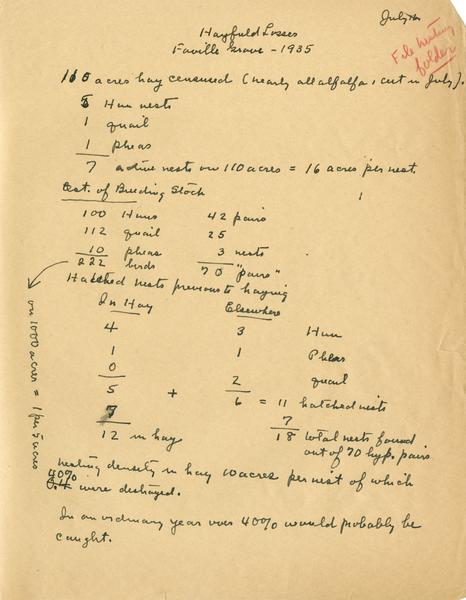 July
Hayfield Losses
Faville Grove - 1935
File nesting
folder
110 acres hay censused (nearly all alfalfa, cut in July).
5 Hun nests
1 quail
1 pheas
7 active nests on 110 acres = 16 acres per nest.
Est. of Breeding Stock
100 Huns 42 pairs
112 quail 25
10 pheas 3 nests
222 birds 70 "pairs"
on 1000 acres = 1 per 5 acres
Hatched nests previous to haying
In Hay Elsewhere
4 3 Hun
1 1 Pheas
0 2 quail
5 + 6 = 11 hatched nests
7 7
12 in hay 18 total nests found
out of 70 hyp. pairs
Nesting density in hay 10 acres per nest of which
40% were destroyed.
In an ordinary year over 40% would probably be
caught.